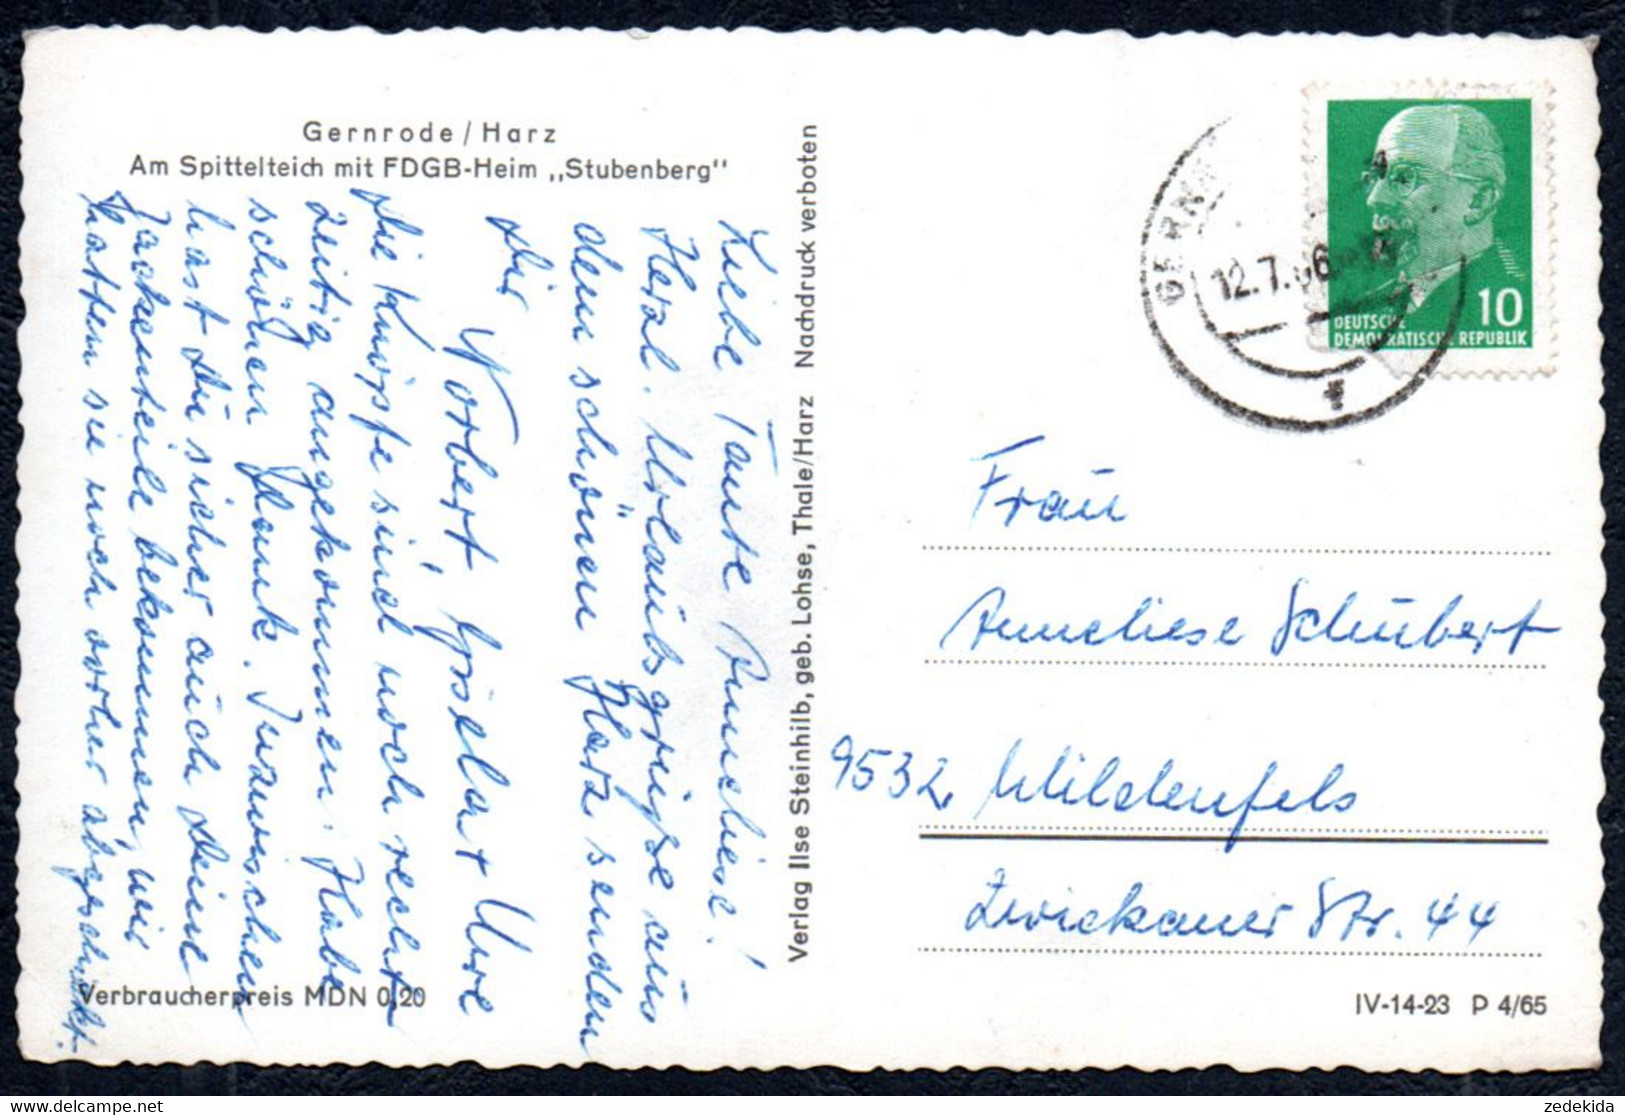 Gernrode / Harz
Am Spittelteich mit FDGB-Heim „Stubenberg"
Liebe Tante Anneliese!
Herzl. Urlaubsgrüße aus
dem schönen Harz senden
Dir
Norbert, Giselar Ure
Die Knöpfe sind noch recht
zeitig angekommen. Habe
schönen Dank. Inzwischen
hast Du sicher auch Deine
Jackenteile bekommen, wir
hatten sie noch vorher abgeschickt.
Verbraucherpreis MDN 0,20
Verlag Ilse Steinhilb, geb. Lohse, Thale/Harz Nachdruck verboten
12.7.66
10
DEUTSCHE
DEMOKRATISCHE REPUBLIK
Frau
Anneliese Schubert
9532 Wildenfels
Zwickauer Str. 44
IV-14-23 P 4/65
zedekida